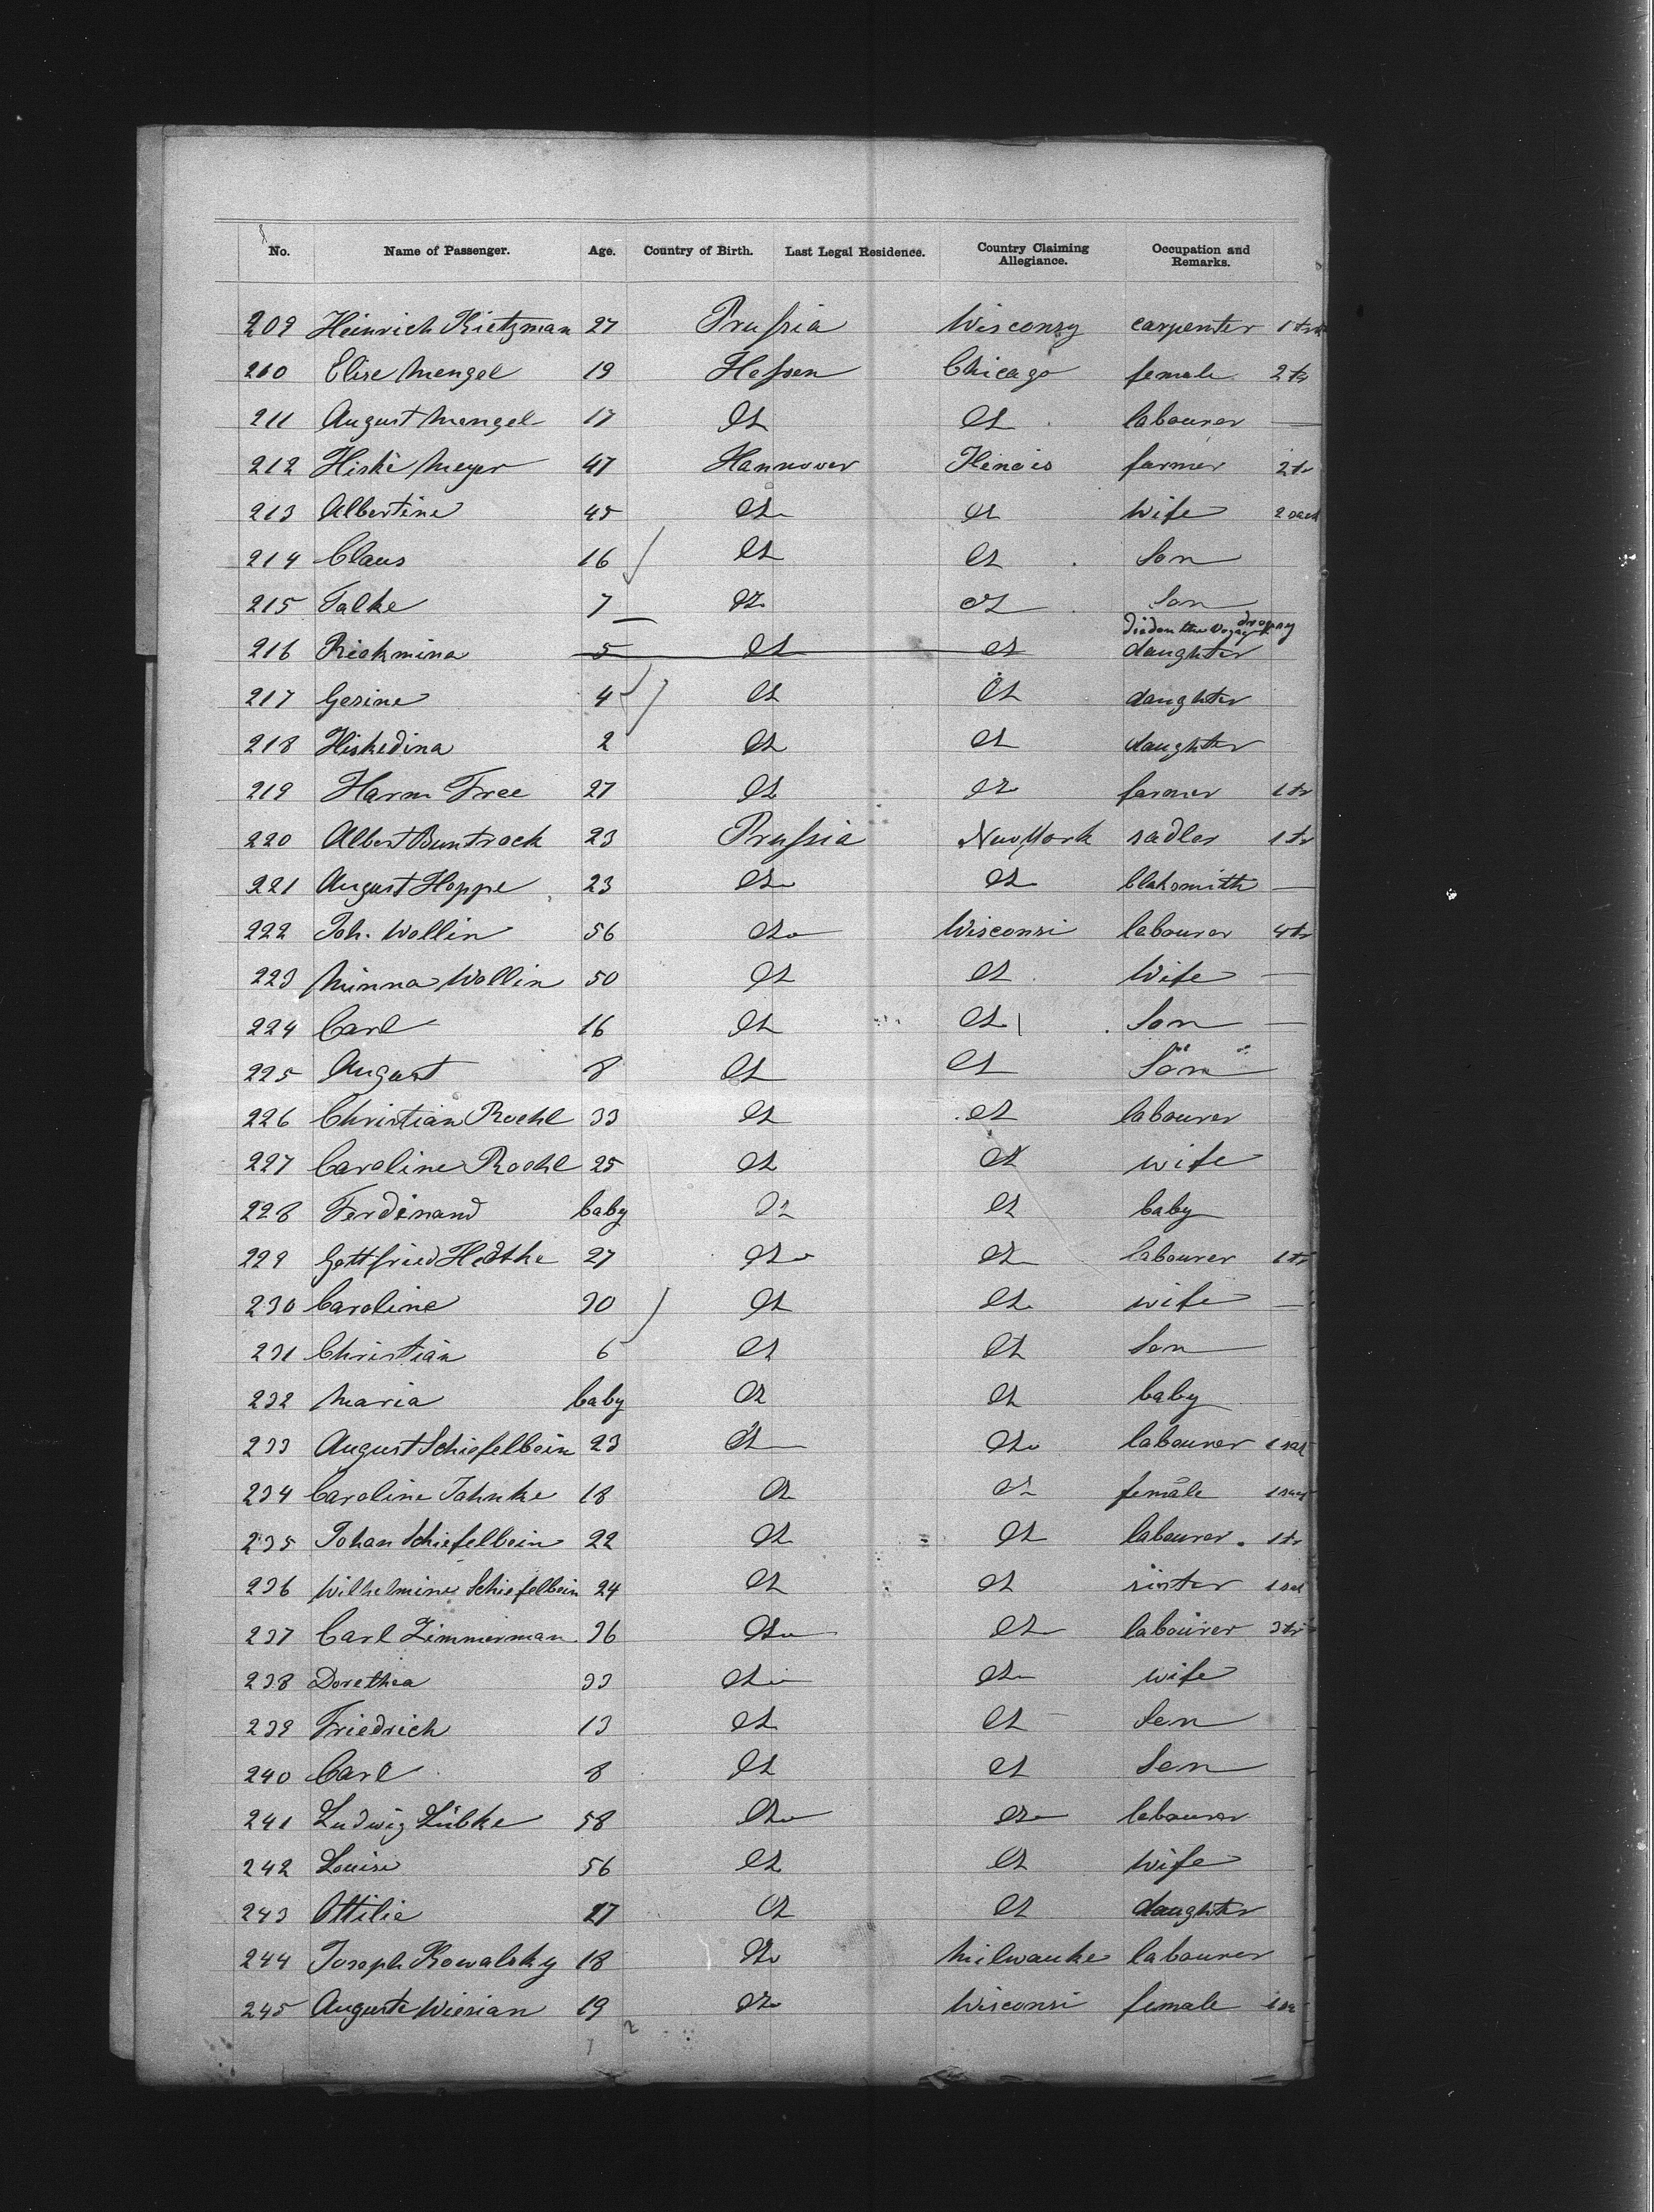 No. Name of Passenger. Age. Country of Birth. Last Legal Residence. Country Claiming Allegiance. Occupation and Remarks.
209 Heinrich Rietzman 27 Prussia Wisconsy carpenter 1 tr
210 Elise Mengel 19 Hessen Chicago female 2 tr
211 August Mengel 17 do do labourer —
212 Hiske Meyer 47 Hannover Ilinois farmer 2 tr
213 Albertine 45 do do Wife 2 sack
214 Claus 16 do do Son
215 Talke 7 do do Son
died on the Voyage dropsy
216 Riekmina 5 do do daughter
217 Gesine 4 do do daughter
218 Hiskedina 2 do do daughter
219 Harm Free 27 do do farmer 1 tr
220 Albert Buntrock 23 Prussia New York sadler 1 tr
221 August Hoppe 23 do do blaksmith —
222 Joh. Wollin 56 do Wisconsi labourer 4 tr
223 Minna Wollin 50 do do Wife —
224 Carl 16 do do Son —
225 August 8 do do Son
226 Christian Roehl 33 do do labourer
227 Caroline Roehl 25 do do wife
228 Ferdinand baby do do baby
229 Gottfried Hedthe 27 do do labourer 1 tr
230 Caroline 30 do do wife —
231 Christian 6 do do Son
232 Maria baby do do baby
233 August Schiefelbein 23 do do labourer 1 sack
234 Caroline Jahnke 18 do do female 1 sack
235 Johan Schiefelbein 22 do do labourer 1 tr
236 Wilhelmine Schiefelbein 24 do do sister 1 sack
237 Carl Zimmerman 36 do do labourer 3 tr
238 Dorethea 33 do do wife
239 Friedrich 13 do do Son
240 Carl 8 do do Son
241 Ludwig Lübke 58 do do labourer
242 Louise 56 do do Wife
243 Ottilie 27 do do daughter
244 Joseph Kowalsky 18 do Milwauke labourer
245 Auguste Wiesian 19 do Wisconsi female 1 sa